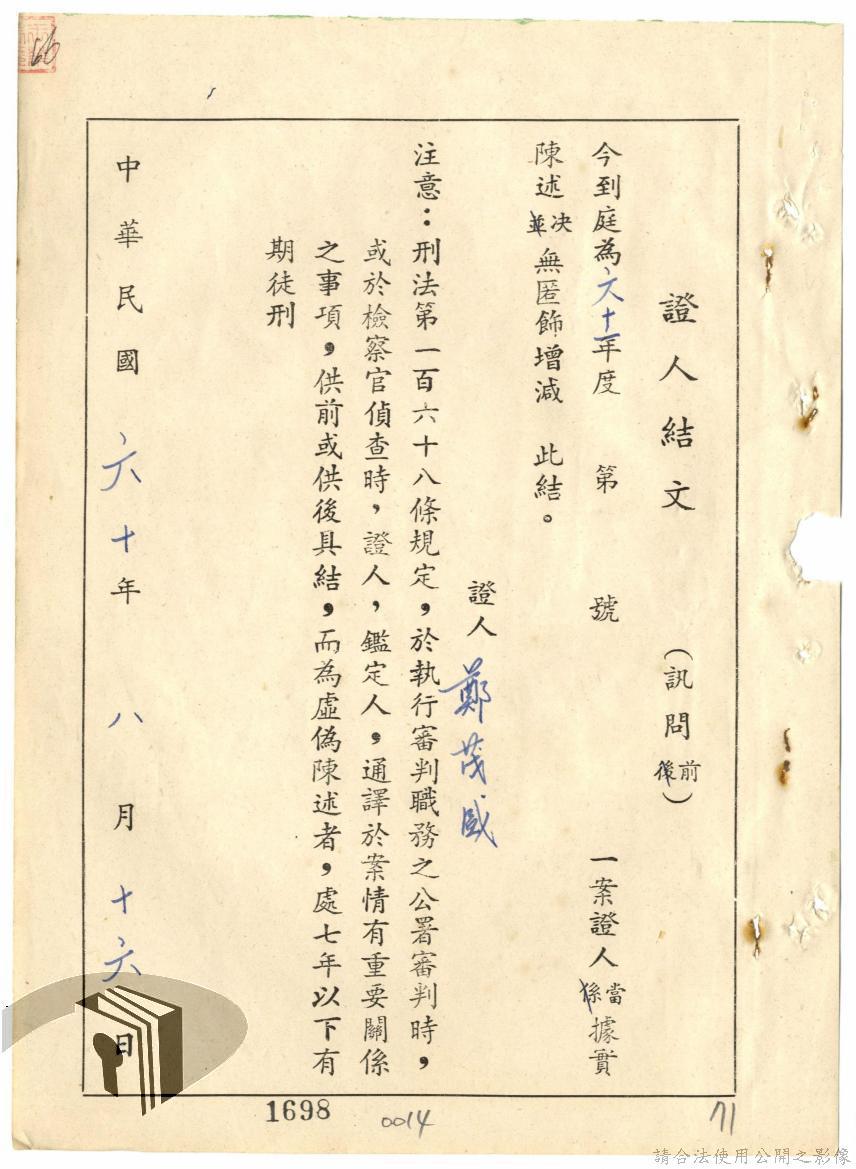 證人結文(訊問前後)
今到庭為六十年度 第 號 一案證人當係據實
陳述決並無匿飾增減 此結。
證人 鄭茂盛
注意：刑法第一百六十八條規定，於執行審判職務之公署審判時，
或於檢察官偵查時，證人，鑑定人，通譯於案情有重要關係
之事項，供前或供後具結，而為虛偽陳述者，處七年以下有
期徒刑
中華民國六十年八月十六日
1698
0014
71
請合法使用公開之影像